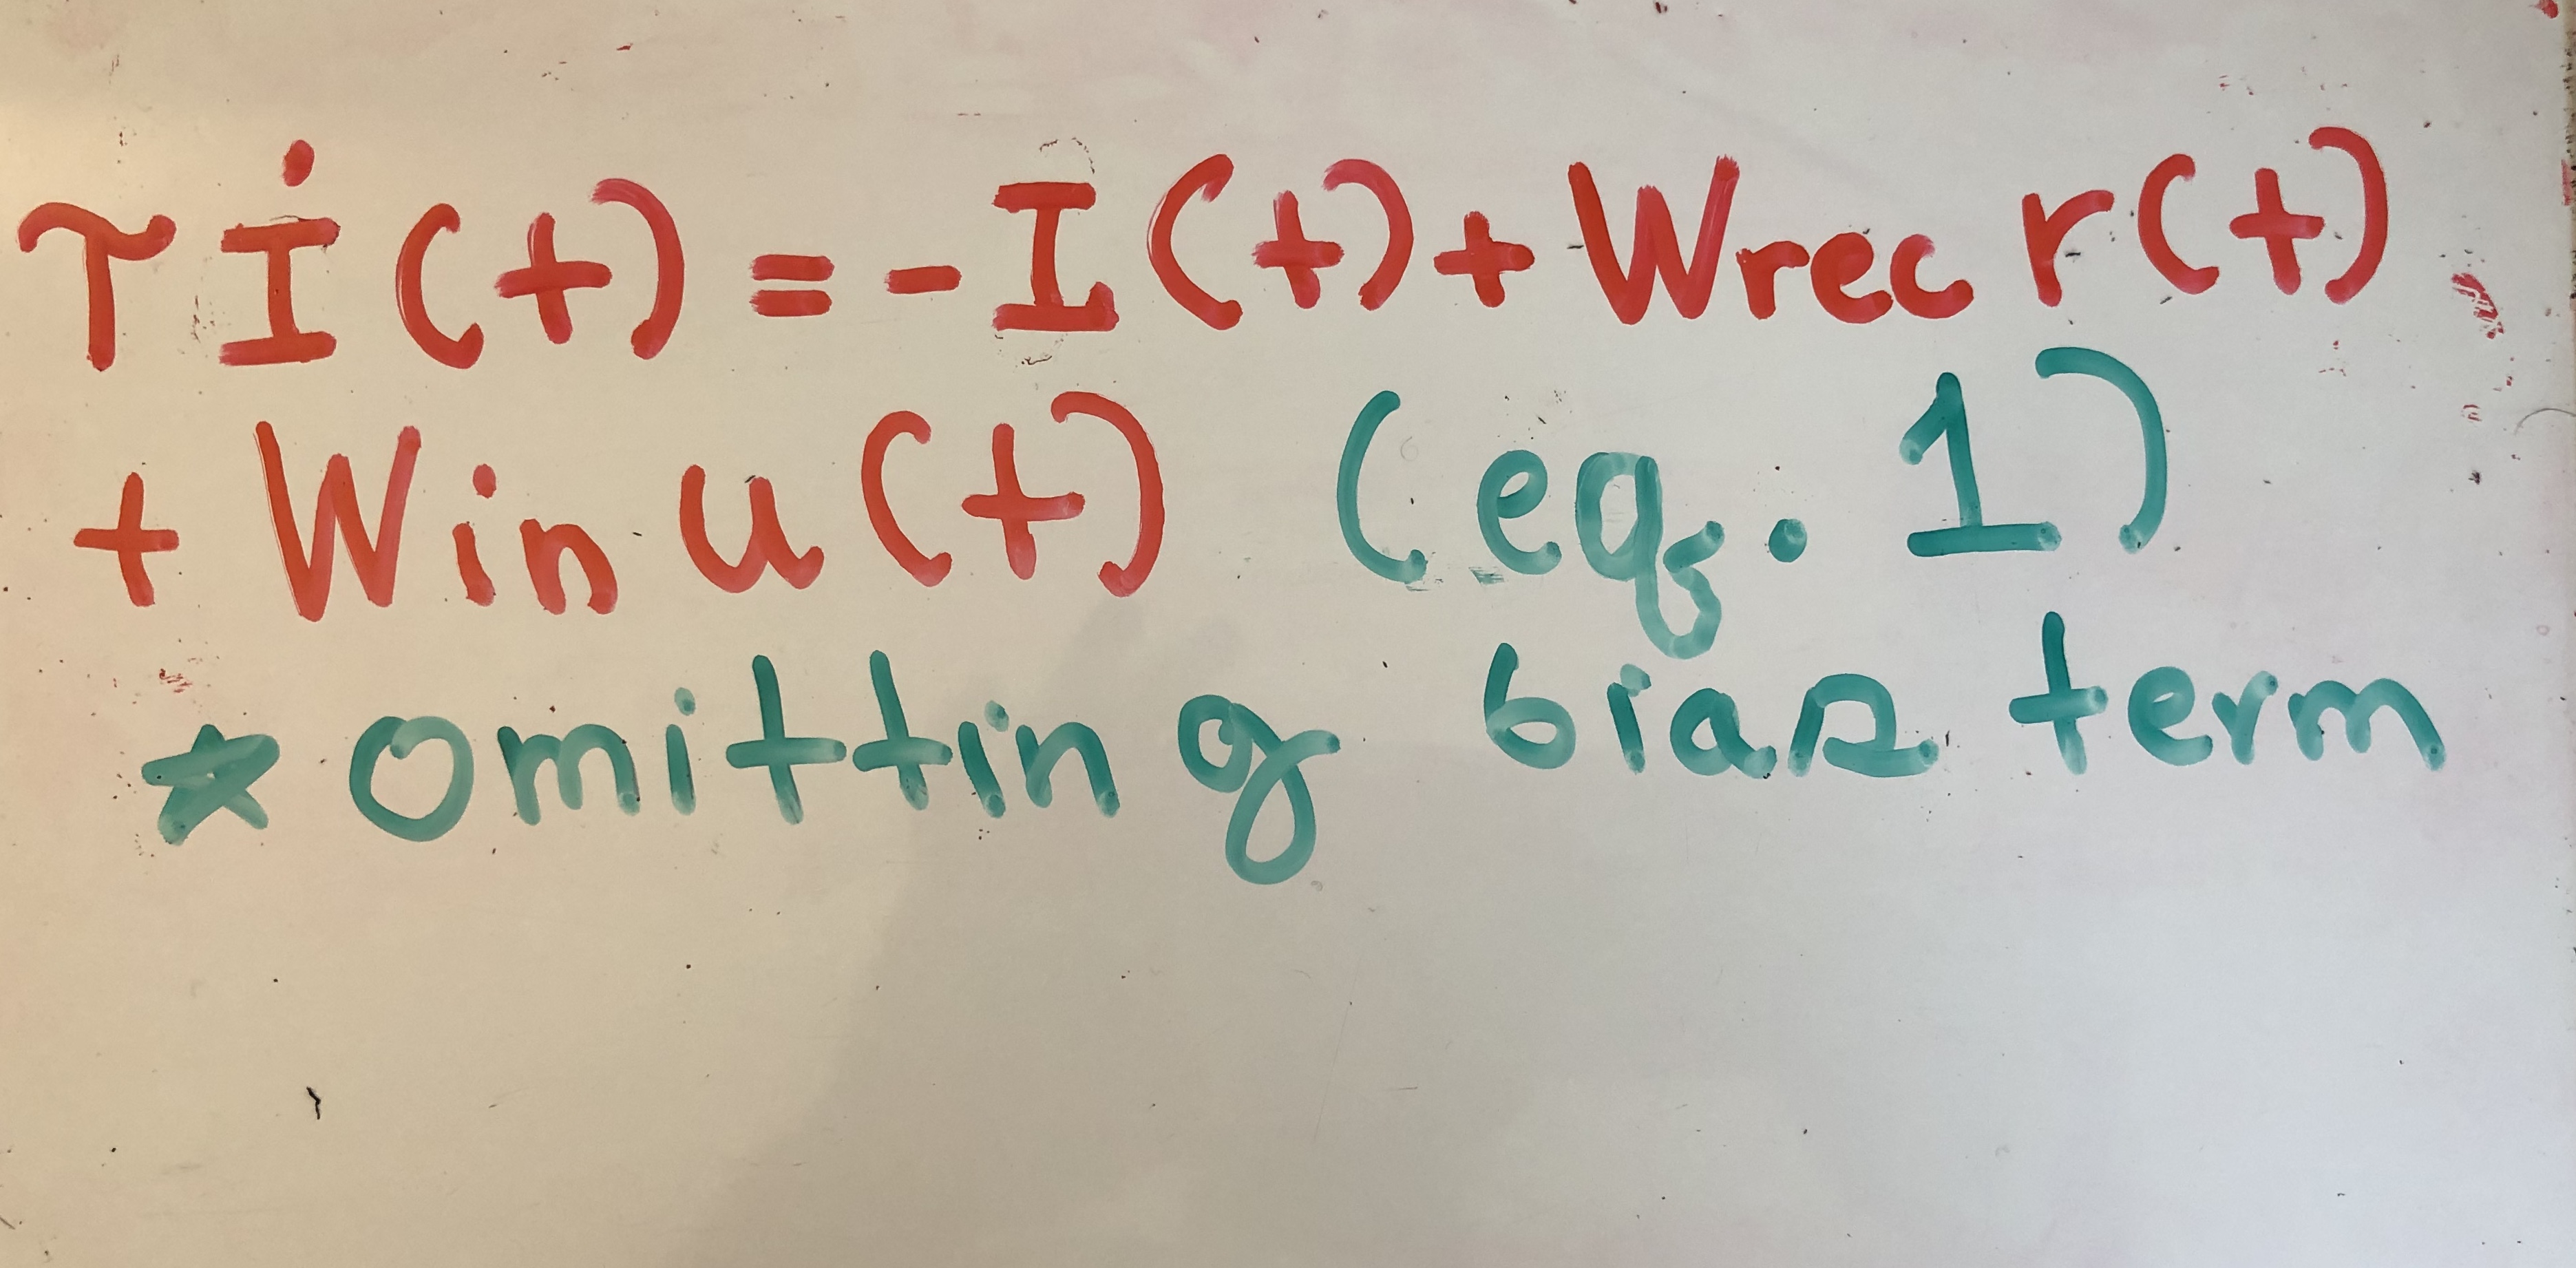 τ İ(t) = - I(t) + Wrec r(t)
+ Win u(t) (eq. 1)
* omitting bias term